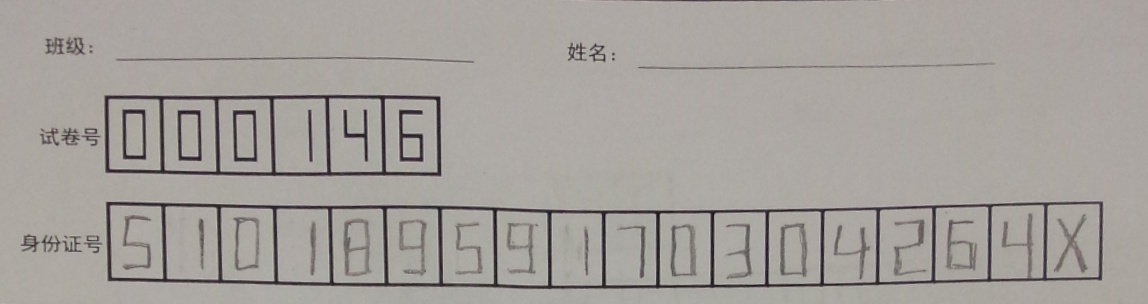 班级： 姓名：
试卷号 000146
身份证号 51018959170304264X